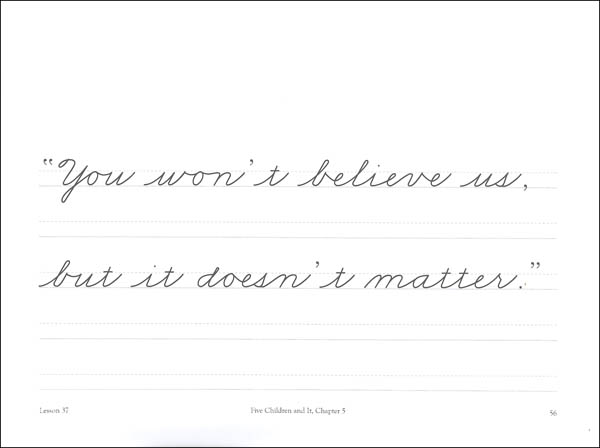 “You won’t believe us,
but it doesn’t matter.”
Lesson 37 Five Children and It, Chapter 5 56